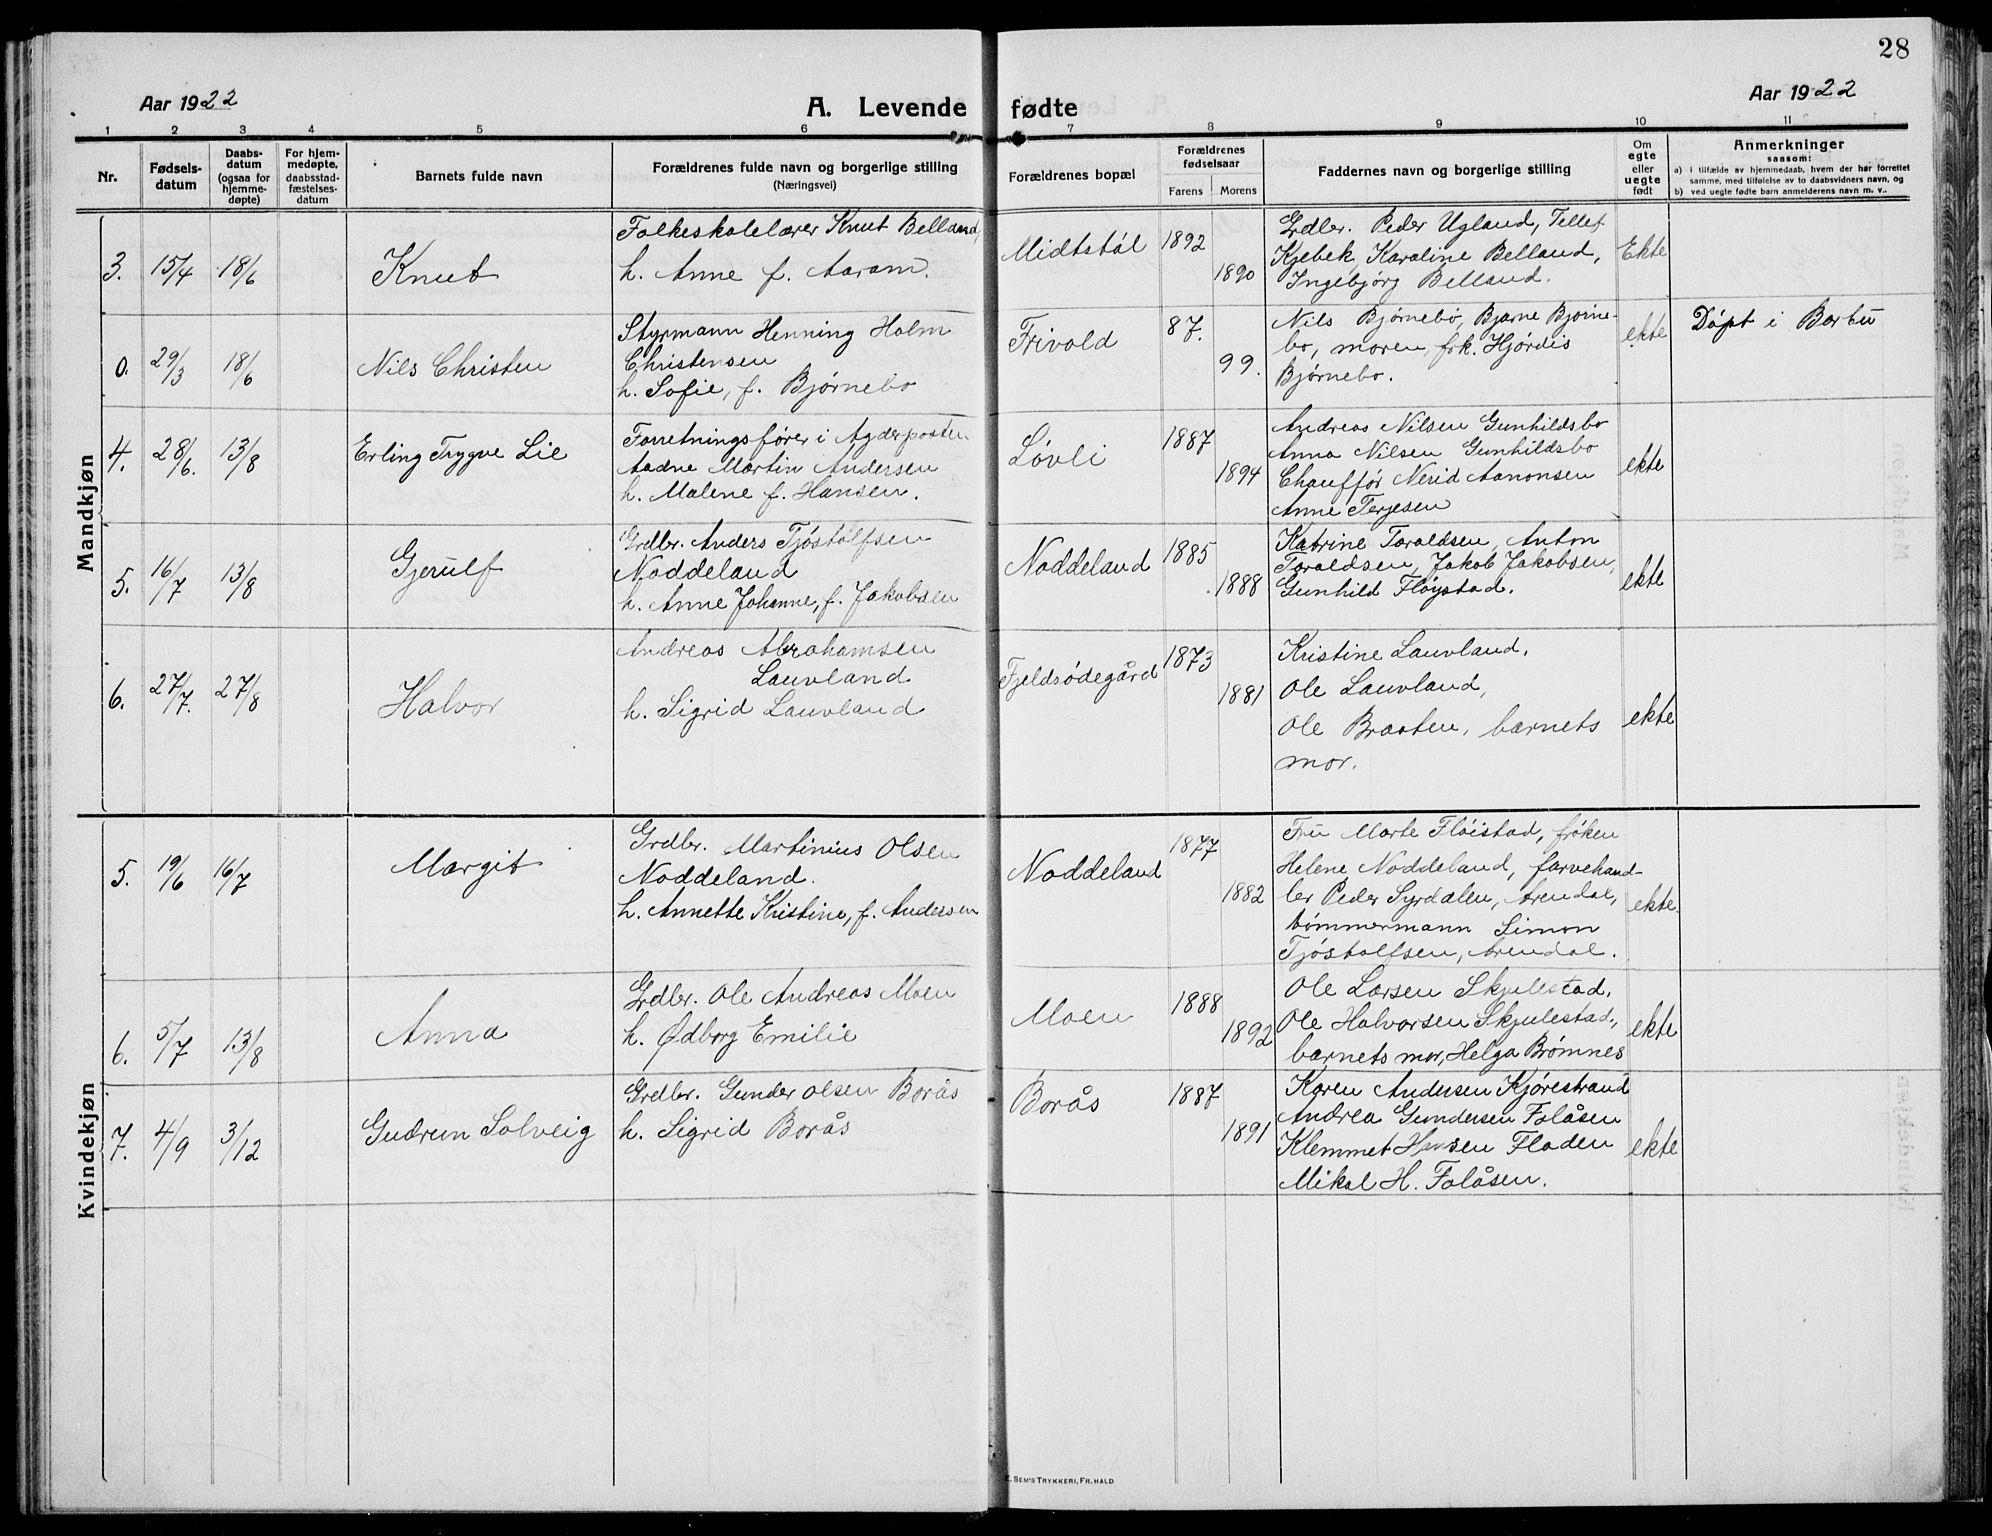 28
Aar 1922
A. Levende fødte
Aar 1922
1 2 3 4 5 6 7 8 9 10 11
Nr.
Fødsels-
datum
Daabs-
datum
(ogsaa for
hjemme-
døpte)
For hjem-
medøpte,
daabsstad-
fæstelses-
datum
Barnets fulde navn
Forældrenes fulde navn og borgerlige stilling
(Næringsvei)
Forældrenes bopæl
Forældrenes
fødselsaar
Farens Morens
Faddernes navn og borgerlige stilling
Om
egte
eller
uegte
født
Anmerkninger
saasom:
a) i tilfælde av hjemmedaab, hvem der har forrettet
samme, med tilføielse av to daabsvidners navn, og
b) ved uegte fødte barn anmelderens navn m. v..
Mandkjøn
3. 15/4 18/6 Knut
Folkeskolelærer Knut Belland,
h. Anne f. Aaram.
Midtstøl 1892
1890
Grdbr. Peder Ugland, Tellef
Kjebek, Karoline Belland,
Ingebjørg Belland.
Ekte
0. 29/3 18/6 Nils Christen
Styrmann Henning Holm
Christensen
h. Sofie, f. Bjørnebo
Frivold 87.
99.
Nils Bjørnebo, Bjarne Bjørne-
bo, moren, frk. Hjørdis
Bjørnebo.
ekte
Døpt i Barbu
4. 28/6. 13/8 Erling Trygve Lie
Forretningsfører i Agderposten
Aadne Martin Andersen
h. Malene f. Hansen.
Løvli 1887
1894
Andreas Nilsen Gunhildsbo
Anna Nilsen Gunhildsbo
Chauffør Nerid Aanonsen
Anne Terjesen
ekte
5. 16/7 13/8 Gjerulf
Grdbr. Anders Tjøstolfsen
Noddeland
h. Anne Johanne, f. Jakobsen
Noddeland 1885
1888
Katrine Taraldsen, Anton
Taraldsen, Jakob Jakobsen,
Gunhild Fløystad.
ekte
6. 27/7. 27/8 Halvor
Andreas Abrahamsen
Lauvland
h. Sigrid Lauvland
Fjeldsødegård 1873
1881
Kristine Lauvland,
Ole Lauvland,
Ole Braaten, barnets
mor.
ekte
Kvindekjøn
5. 19/6 16/7 Margit
Grdbr. Martinius Olsen
Noddeland.
h. Annette Kristine, f. Andersen
Noddeland 1877
1882
Fru Marte Fløistad, frøken
Helene Noddeland, farvehand-
ler Peder Syrdalen, Arendal,
tømmermann Simon
Tjøstolfsen, Arendal.
ekte.
6. 5/7 13/8 Anna
Grdbr. Ole Andreas Moen
h. Ødborg Emilie
Moen 1888
1892
Ole Larsen Skjulestad,
Ole Halvorsen Skjulestad,
barnets mor, Helga Brømnes
ekte
7. 4/9 3/12 Gudrun Solveig
Grdbr. Gunder Olsen Borås
h. Sigrid Borås
Borås 1887
1891
Karen Andersen Kjørestrand
Andrea Gundersen Folåsen
Klemmet Hansen Fladen
Mikal H. Folåsen.
ekte
E. SEM'S TRYKKERI, FR.HALD